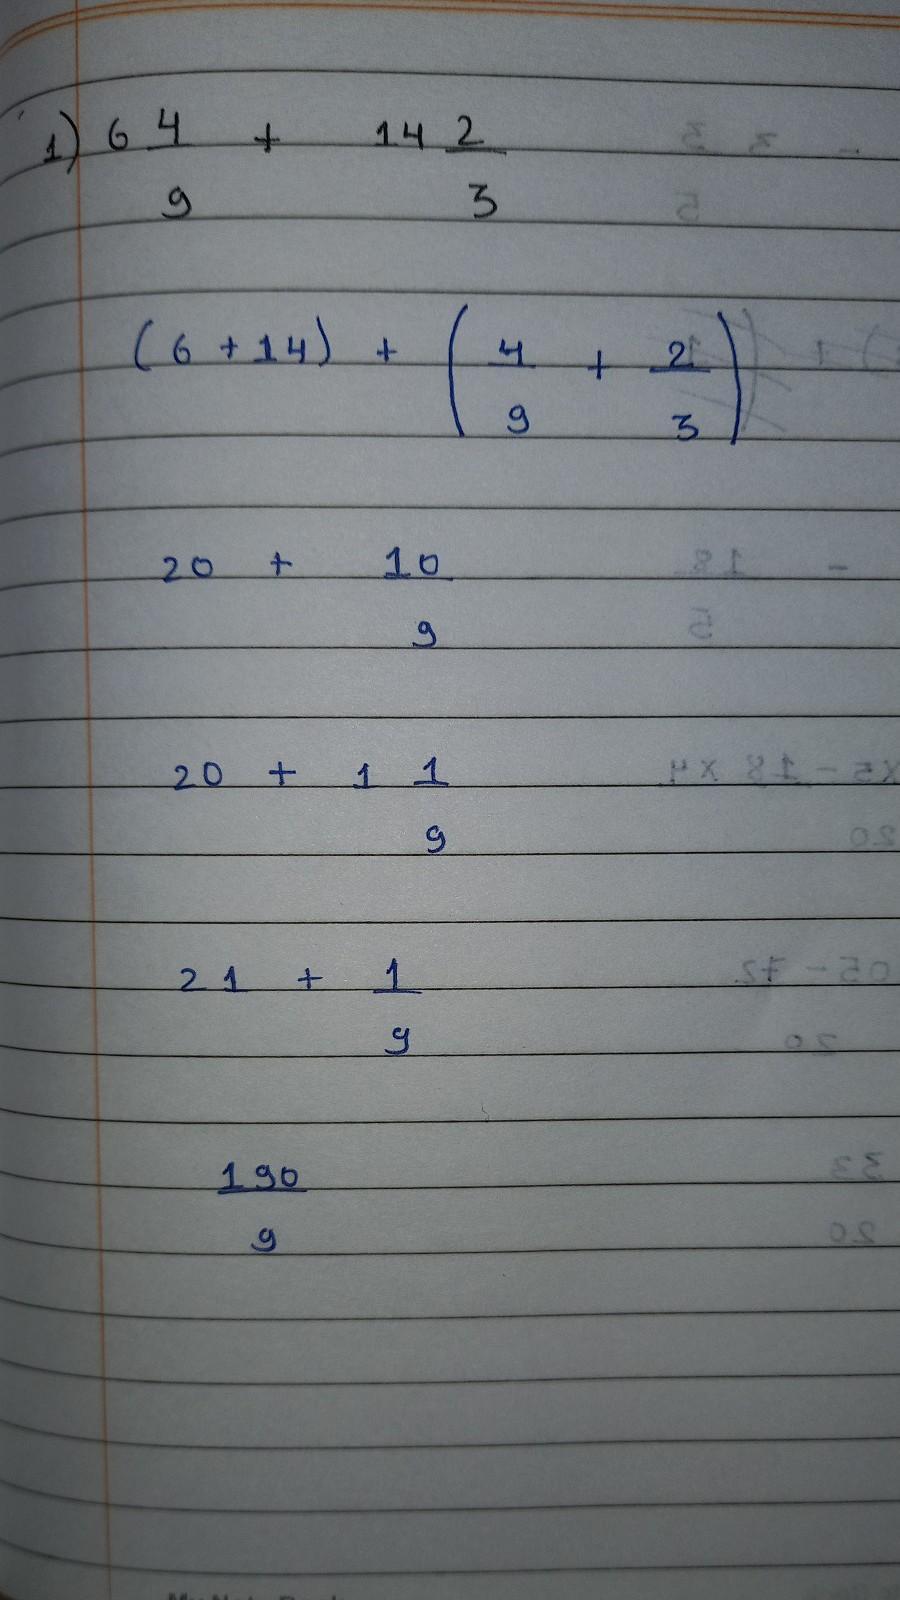 1) 6 4/9 + 14 2/3
(6 + 14) + (4/9 + 2/3)
20 + 10/9
20 + 1 1/9
21 + 1/9
190/9